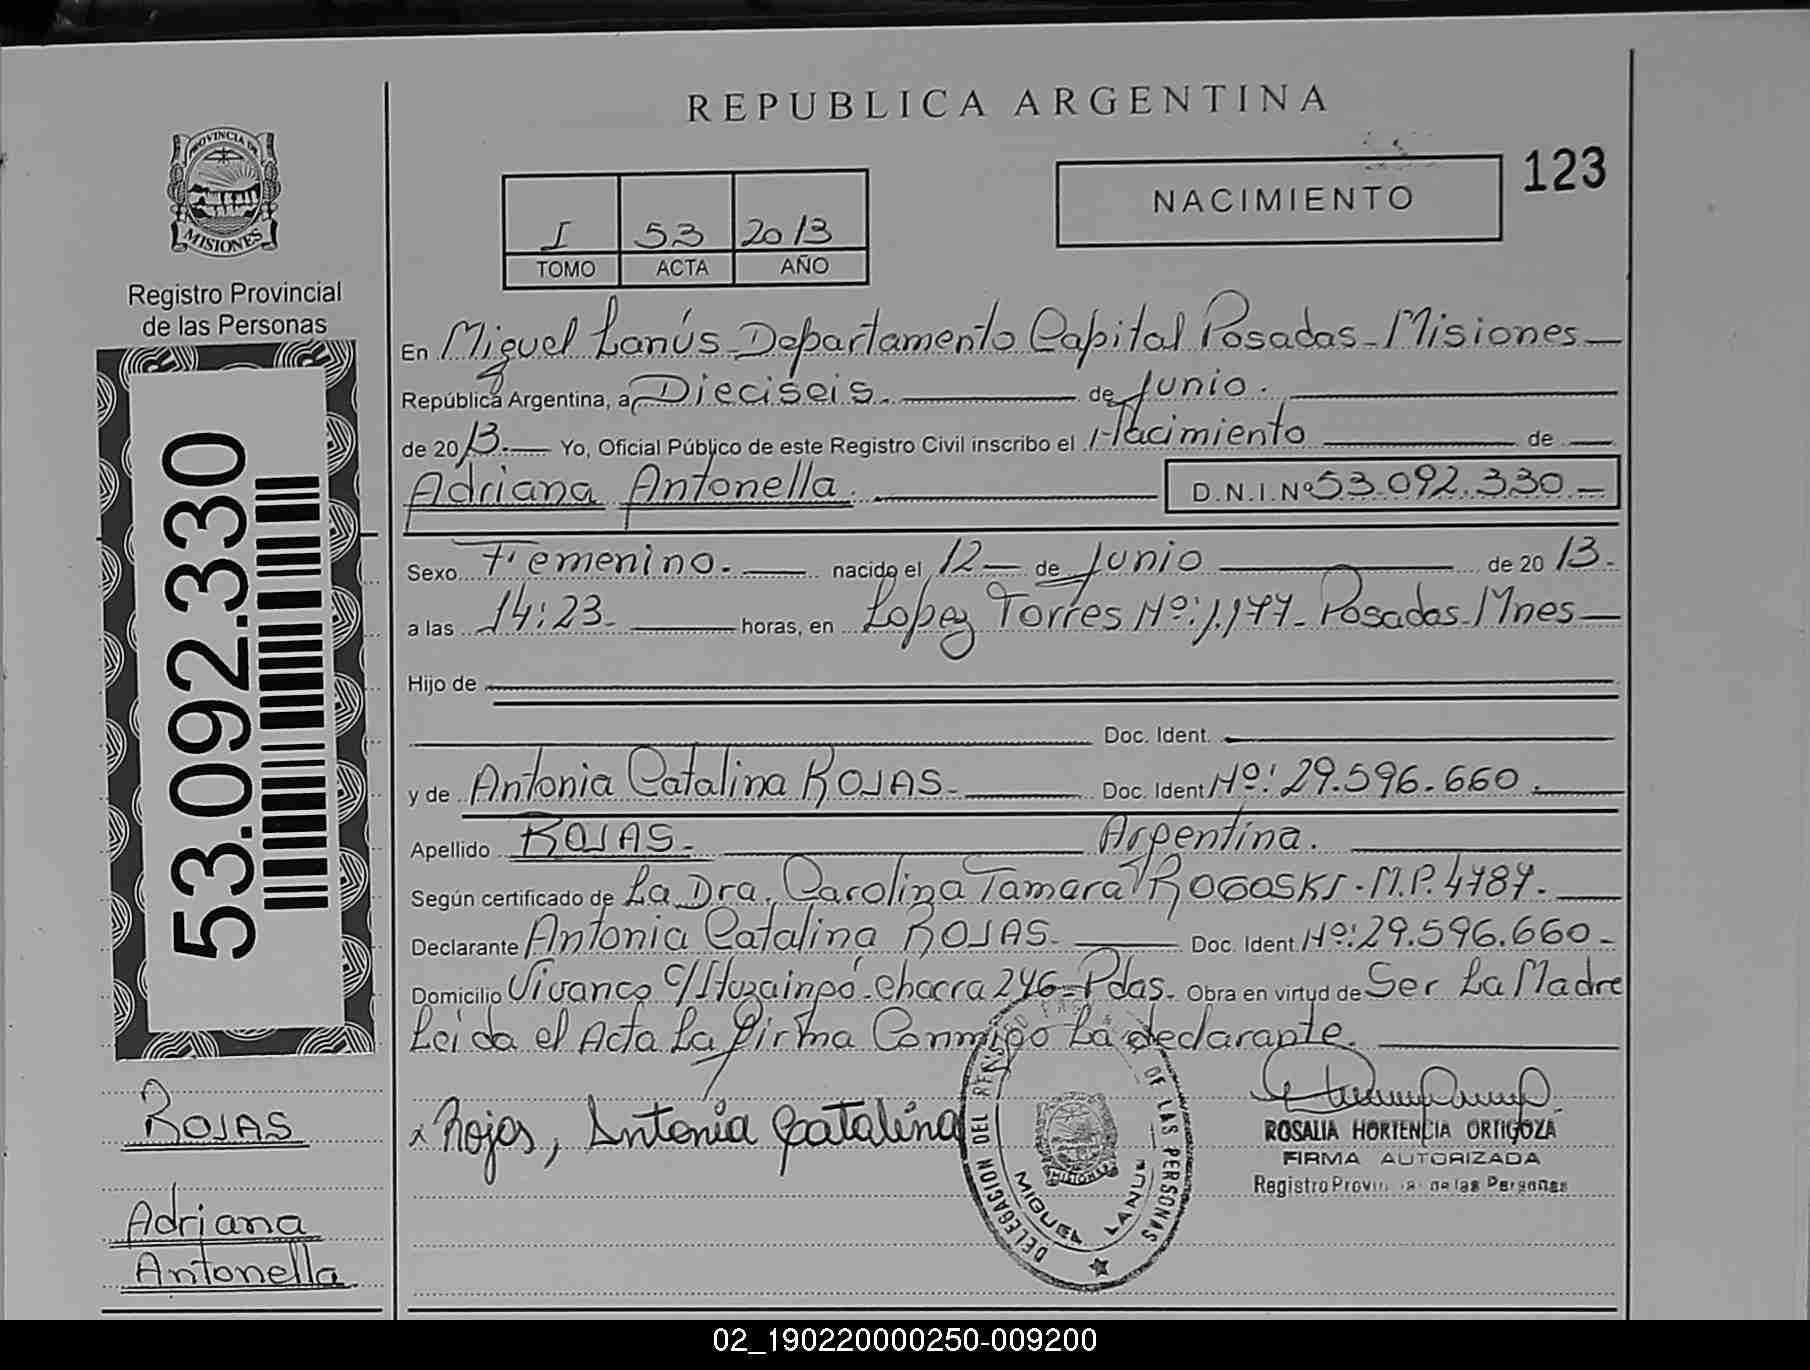 REPUBLICA ARGENTINA
PROVINCIA DE
MISIONES
NACIMIENTO
123
I 53 2013
TOMO ACTA AÑO
Registro Provincial
de las Personas
53.092.330
En Miguel Lanús - Departamento Capital Posadas - Misiones
República Argentina, a Dieciseis. de Junio.
de 2013. Yo, Oficial Público de este Registro Civil inscribo el Nacimiento de
Adriana Antonella. D.N.I.Nº 53.092.330
Sexo Femenino. nacido el 12 de Junio de 2013.
a las 14:23 horas, en Lopez Torres Nº: 1.177 - Posadas - Mnes
Hijo de
Doc. Ident.
y de Antonia Catalina ROJAS. Doc. Ident Nº: 29.596.660.
Apellido ROJAS. Argentina.
Según certificado de La Dra. Carolina Tamara ROGOSKI - M.P. 4787.
Declarante Antonia Catalina ROJAS. Doc. Ident. Nº: 29.596.660
Domicilio Vivanco c/ Ituzaingó - chacra 246 - Pdas. Obra en virtud de Ser La Madre
Leida el Acta La firma Conmigo La declarante.
ROJAS
Adriana
Antonella
x Rojas, Antonia Catalina
DELEGACION DEL DE LAS PERSONAS
MISIONES
MIGUEL LANUS
ROSALIA HORTENCIA ORTIGOZA
FIRMA AUTORIZADA
Registro de las Personas
02_190220000250-009200